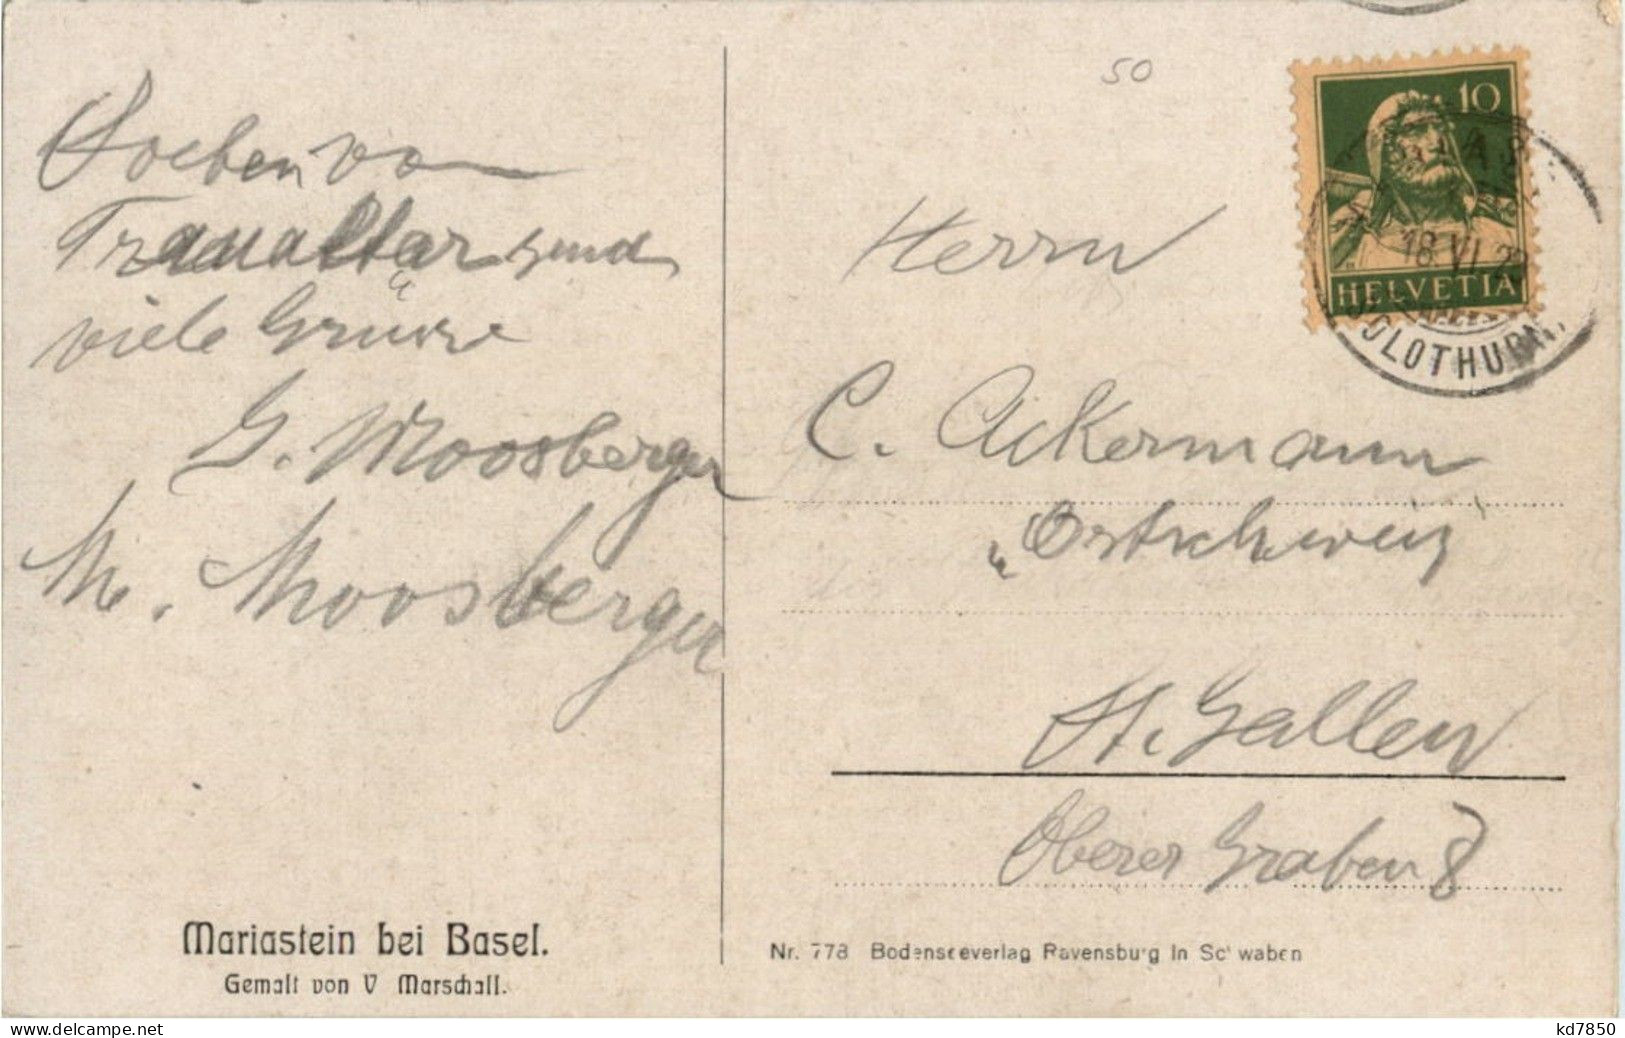 Soeben von
Traualtar send
viele Grüsse
G. Moosberger
M. Moosberger
Mariastein bei Basel.
Gemalt von V Marschall.
50
10
HELVETIA
18. VI. 2
SOLOTHURN.
Herrn
C. Ackermann
„Ostschweiz
St. Gallen
Oberer Graben 8
Nr. 778 Bodenseeverlag Ravensburg in Schwaben
kd7850